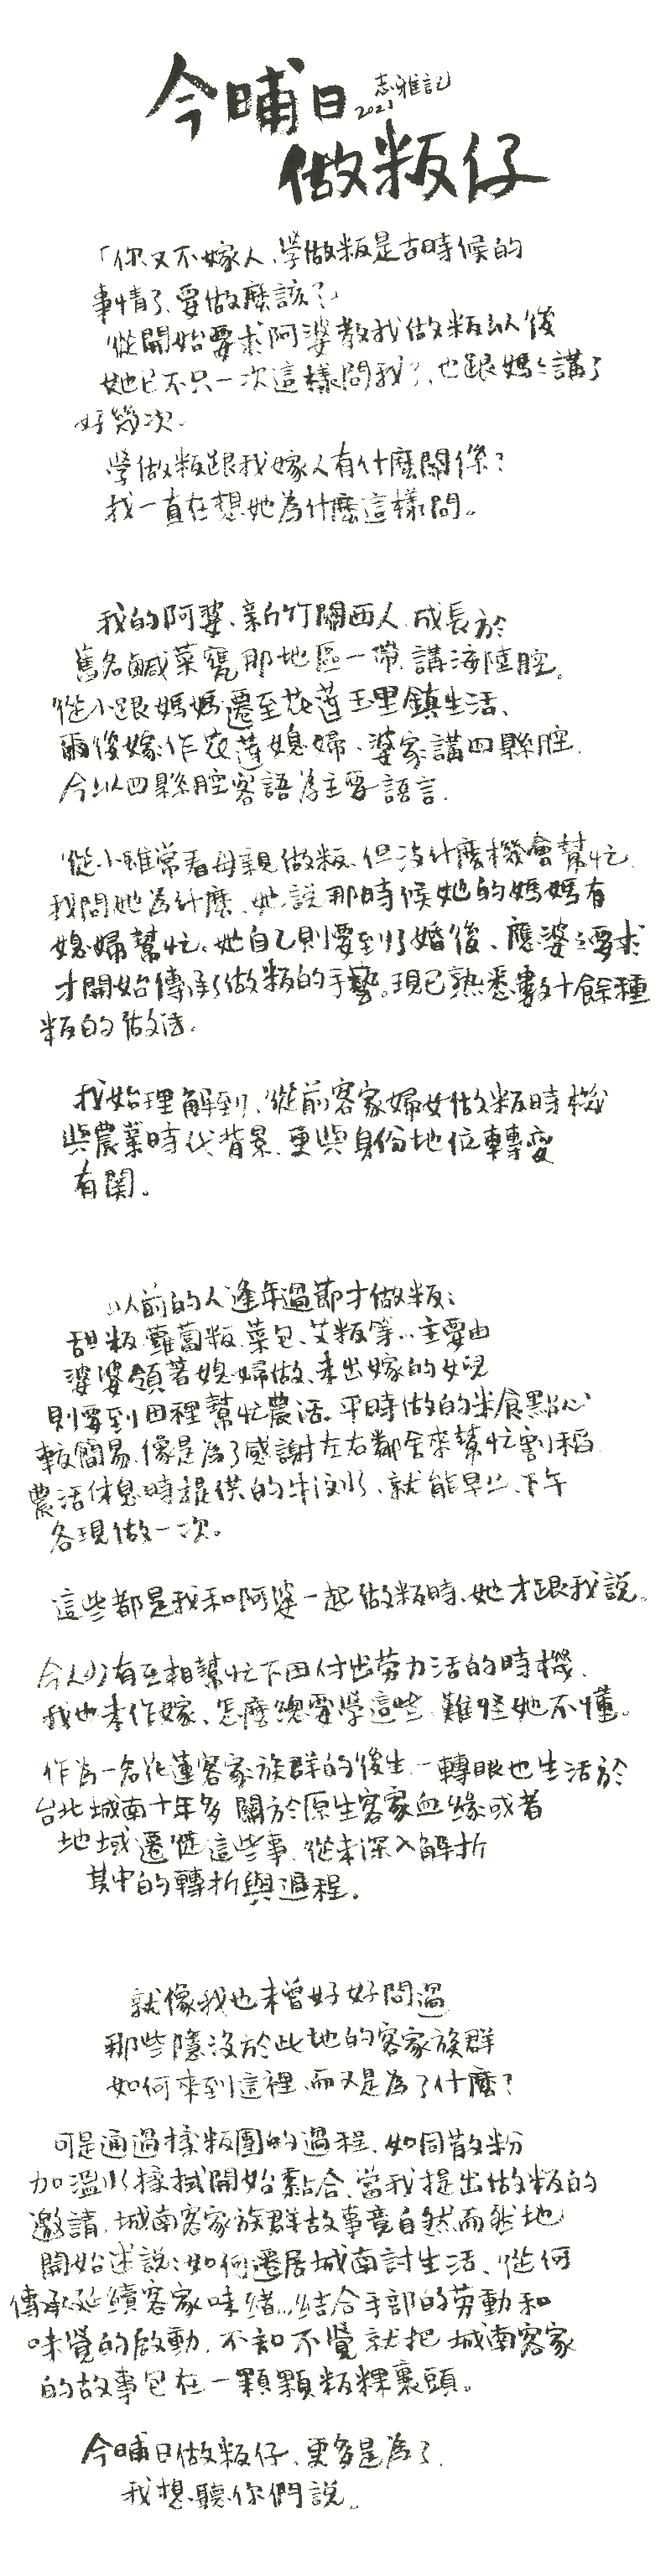 今晡日
志雅記
2021
做粄仔
「你又不嫁人、學做粄是古時候的
事情了、要做麼該？」
從開始要求阿婆教我做粄以後
她已不只一次這樣問我了、也跟媽媽講了
好幾次。
學做粄跟我嫁人有什麼關係？
我一直在想她為什麼這樣問。
我的阿婆、新竹關西人、成長於
舊名鹹菜甕那地區一帶、講海陸腔。
從小跟媽媽遷至花蓮玉里鎮生活、
爾後嫁作花蓮媳婦、婆家講四縣腔、
今以四縣腔客語為主要語言.
從小雖常看母親做粄、但沒什麼機會幫忙、
我問她為什麼、她說那時候她的媽媽有
媳婦幫忙。她自己則要到了婚後、應婆婆要求
才開始傳承做粄的手藝。現已熟悉數十餘種
粄的做法。
我始理解到、從前客家婦女做粄時機
與農業時代背景、更與身份地位轉變
有關。
以前的人逢年過節才做粄：
甜粄、蘿蔔粄、菜包、艾粄等…主要由
婆婆領著媳婦做、未出嫁的女兒
則要到田裡幫忙農活。平時做的米食點心
較簡易、像是為了感謝左右鄰舍來幫忙割稻
農活休息時提供的牛汶水、就能早上、下午
各現做一次。
這些都是我和阿婆一起做粄時、她才跟我說。
今人少有互相幫忙下田付出勞力活的時機、
我也未作嫁、怎麼總要學這些、難怪她不懂。
作為一名花蓮客家族群的後生、一轉眼也生活於
台北城南十年多、關於原生客家血緣或者
地域遷徙這些事、從未深入解析
其中的轉折與過程.
就像我也未曾好好問過
那些隱沒於此地的客家族群
如何來到這裡、而又是為了什麼？
可是通過揉粄團的過程、如同散粉
加溫水揉拭開始黏合、當我提出做粄的
邀請、城南客家族群故事竟自然而然地
開始述說：如何遷居城南討生活、從何
傳承延續客家味緒…結合手部的勞動和
味覺的啟動、不知不覺就把城南客家
的故事包在一顆顆粄粿裏頭。
今晡日做粄仔、更多是為了、
我想聽你們說。